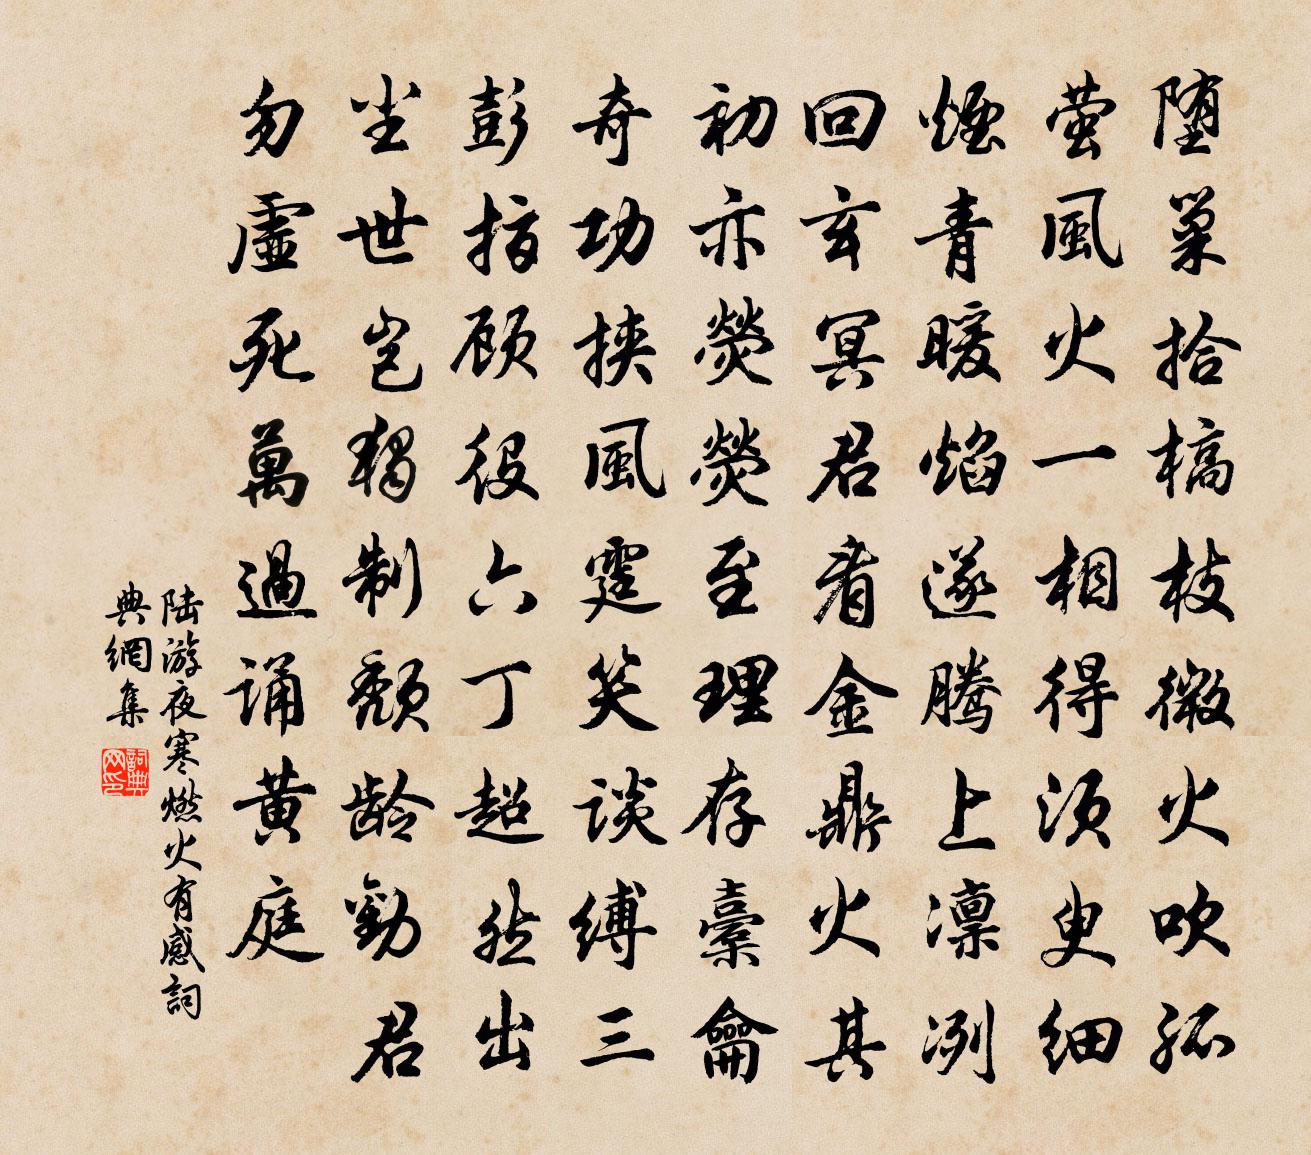 堕巢拾槁枝微火吹孤
萤風火一相得須臾細
煙青暖焰遂腾上凛冽
回玄冥君看金鼎火其
初亦熒熒至理存橐龠
奇功挟風霆笑谈缚三
彭指顾役六丁超然出
尘世岂獨制颓龄勸君
勿虛死萬過诵黄庭
陆游夜寒燃火有感詞
典網集
詞典网印